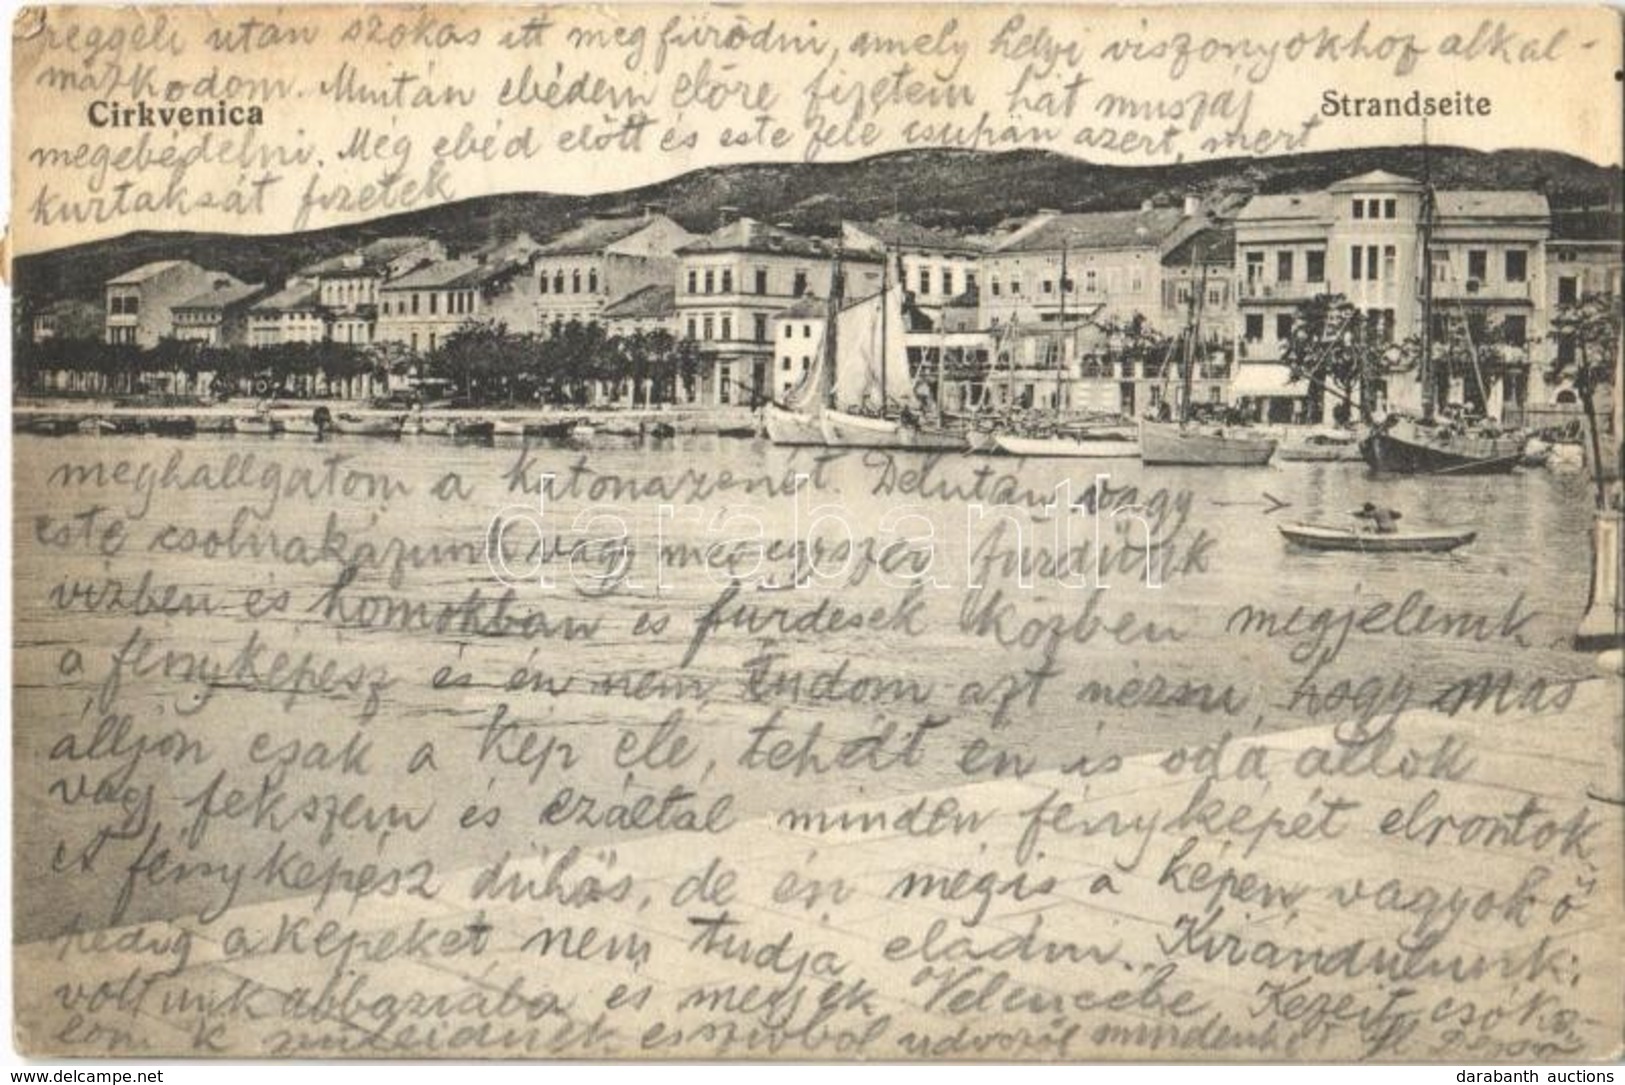 reggeli után szokás itt megfürödni, amely helyi viszonyokhoz alkal-
mazkodom. Miután ebédem előre fizetem, hát muszáj
Cirkvenica
Strandseite
megebédelni. Még ebéd előtt és este felé csupán azért, mert
kurtaksát fizetek
meghallgatom a katonazenét. Délután vagy
este csolnakázunk vagy még egyszer fürdünk
vízben és homokban és fürdések közben megjelenik
a fényképész és én nem tudom azt nézni, hogy más
álljon csak a kép elé, tehát én is oda állok
vagy fekszem és ezáltal minden fényképét elrontok
A fényképész dühös, de én mégis a képen vagyok ő
pedig a képeket nem tudja eladni. Kirándulunk;
voltunk abbaziába és megyek Velencébe Kezeit csókol-
om K és szívből üdvözöl mindenkit
darabanth
© www.delcampe.net
darabanth auctions